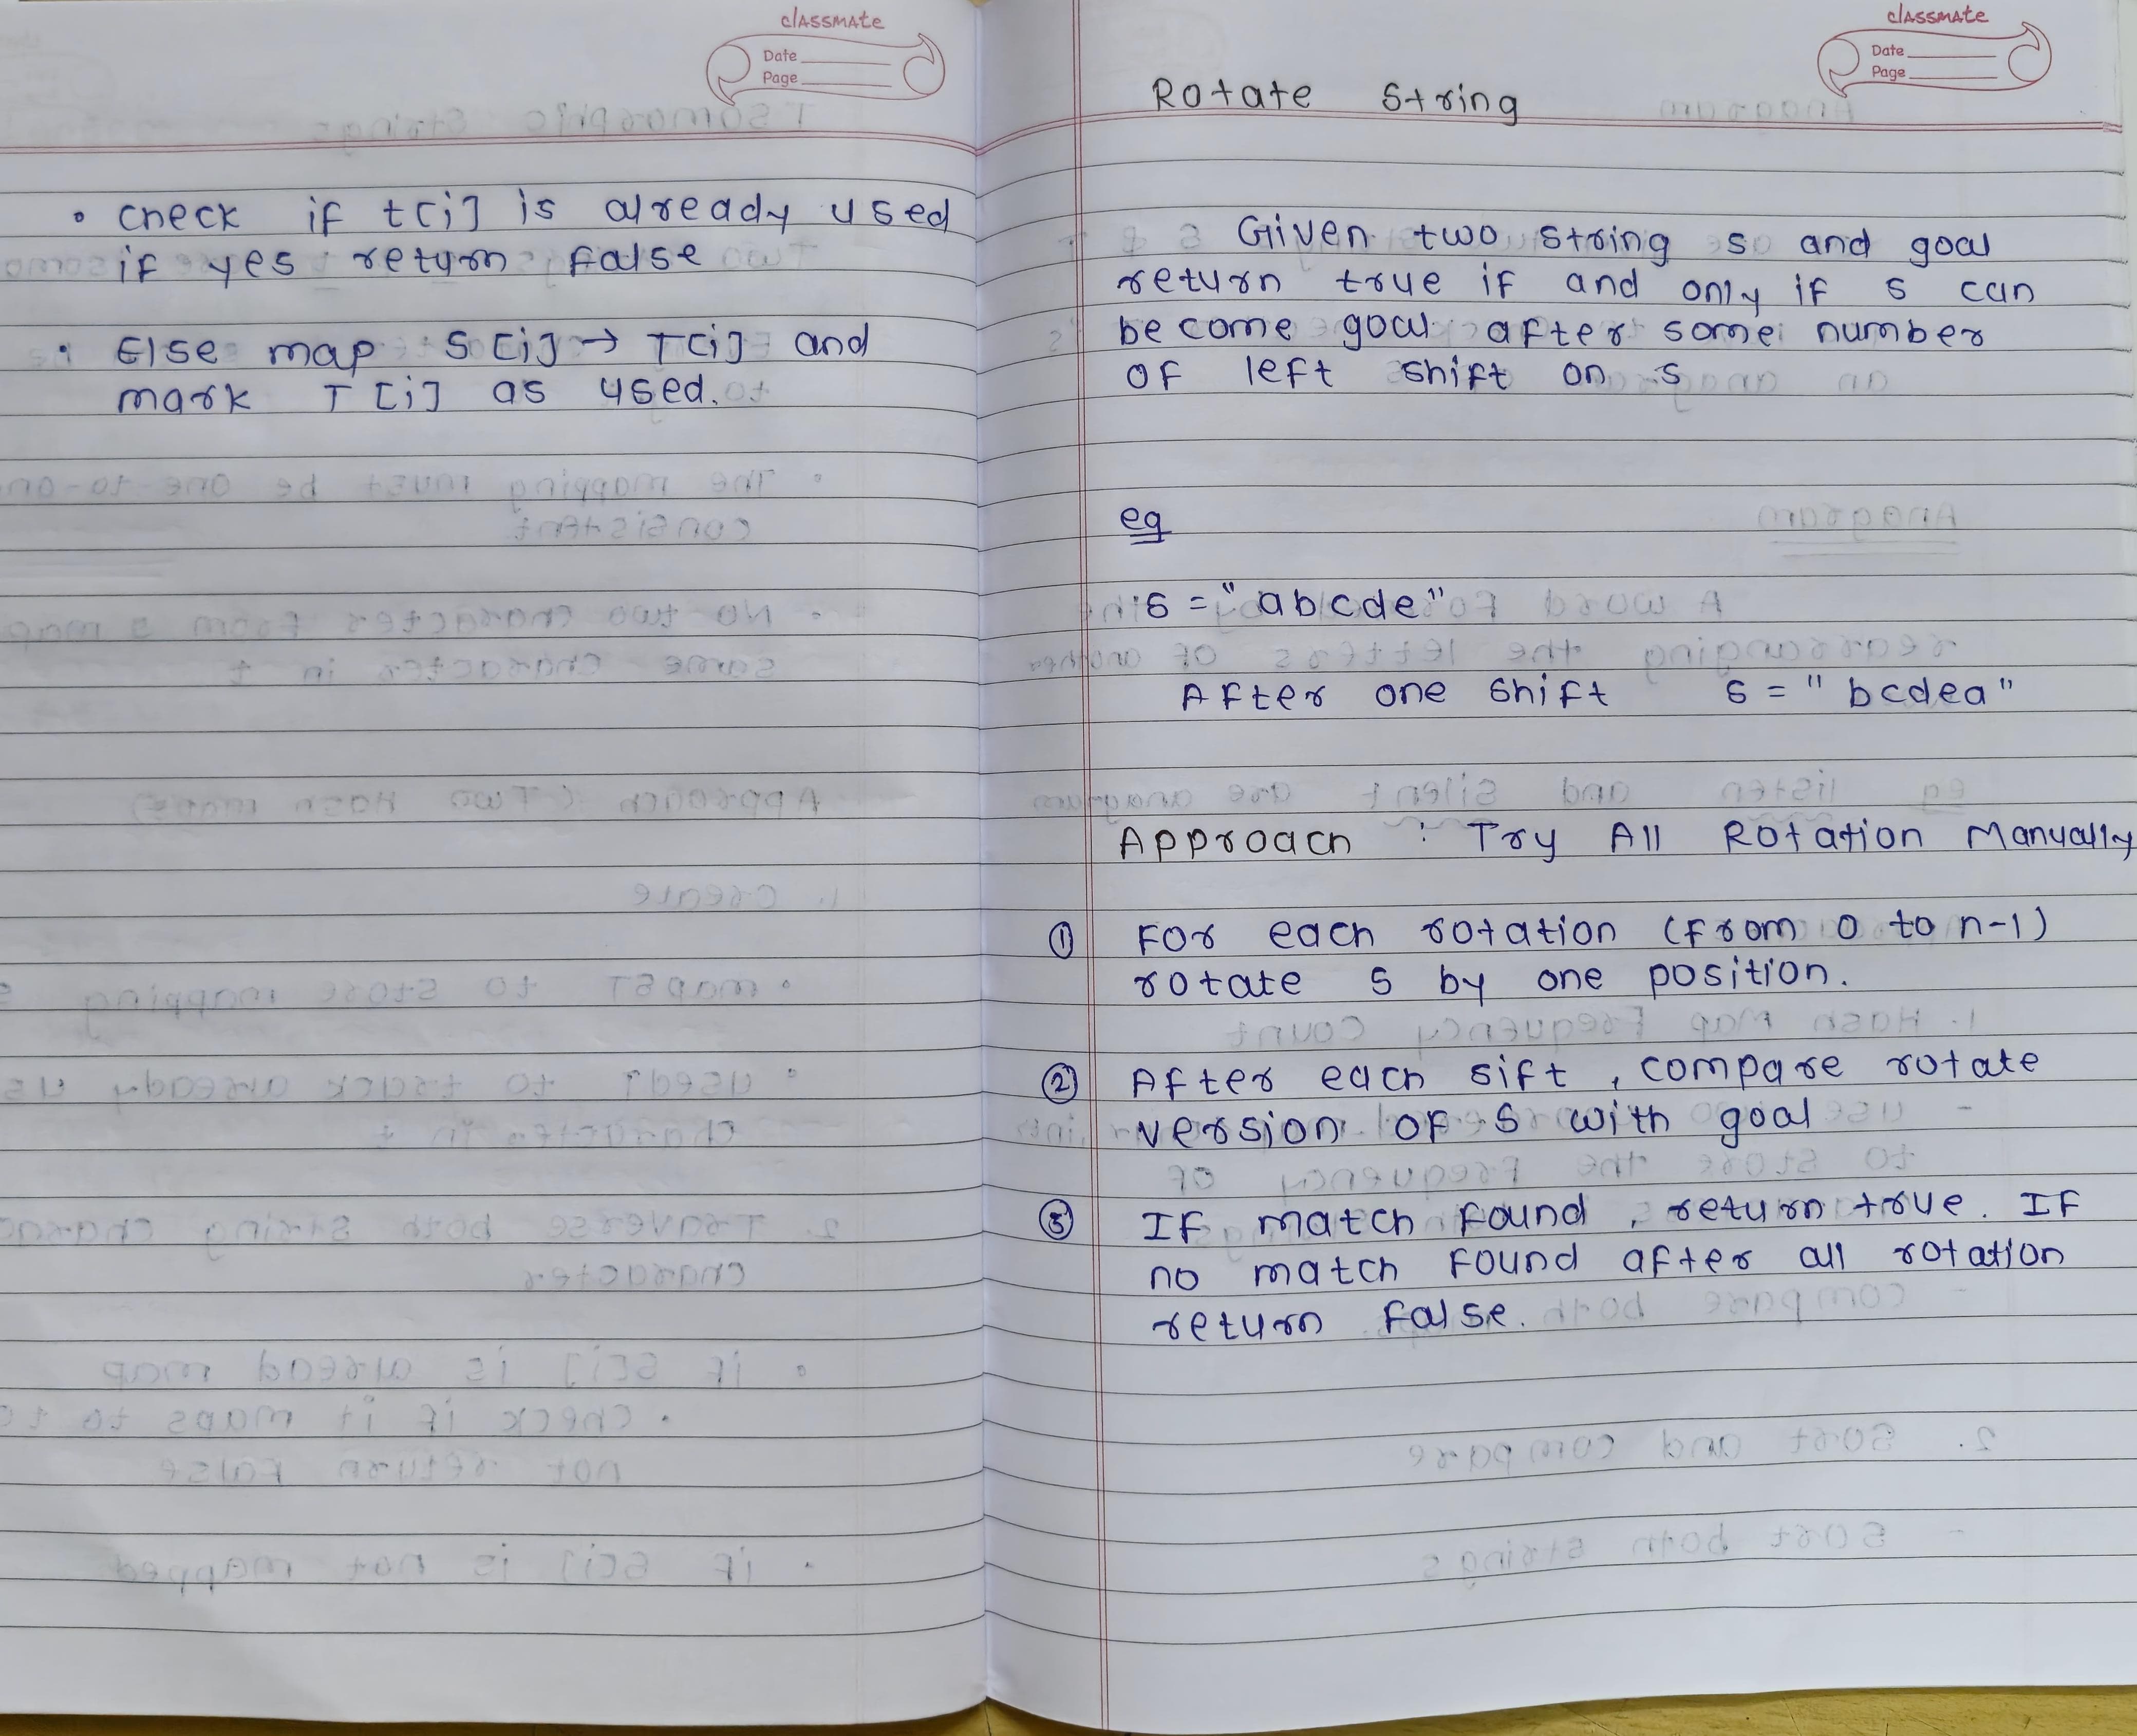 classmate
Date
Page
• check if t[i] is already used
if yes return false
• Else map S[i] → T[i] and
mark T[i] as used.
classmate
Date
Page
Rotate String
Given two string s and goal
return true if and only if s can
become goal after some number
of left shift on s
eg
s = "abcde"
After one shift s = "bcdea"
Approach : Try All Rotation Manually
① For each rotation (from 0 to n-1)
rotate s by one position.
② After each sift, compare rotate
version of s with goal
③ If match found, return true. If
no match found after all rotation
return false.